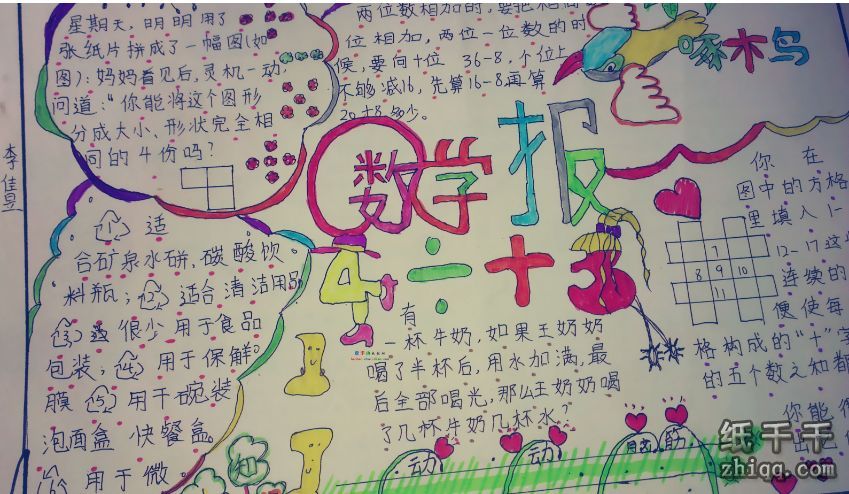 李佳昱
星期天，明明用了
张纸片拼成了一幅图(如
图)：妈妈看见后，灵机一动，
问道："你能将这个图形
分成大小、形状完全相
同的4份吗?
两位数相加时，要把相同
位相加，两位一位数的时
候，要向十位 36-8，个位上
不够减16，先算16-8，再算
20+8 多少。
啄木鸟
数学报
4÷+3
1 适
合矿泉水硑，碳酸饮
料瓶；2 适合清洁用品
3 很少用于食品
包装；4 用于保鲜。
膜 5 用于碗装
泡面盒 快餐盒。
6 用于微
有
一杯牛奶，如果王奶奶
喝了半杯后，用水加满，最
后全部喝光，那么王奶奶喝
了几杯牛奶几杯水?
你在
图中的方格
里填入1-
12-17这
连续的
便使每
格构成的"十"字
的五个数之和都
你能
出
7
8 9 10
11
知
动 动 脑筋
纸千千
zhiqq.com